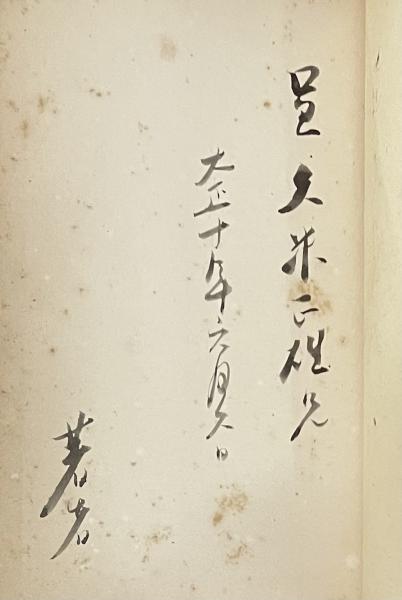 呈久米正雄兄
大正十年六月六日
著者